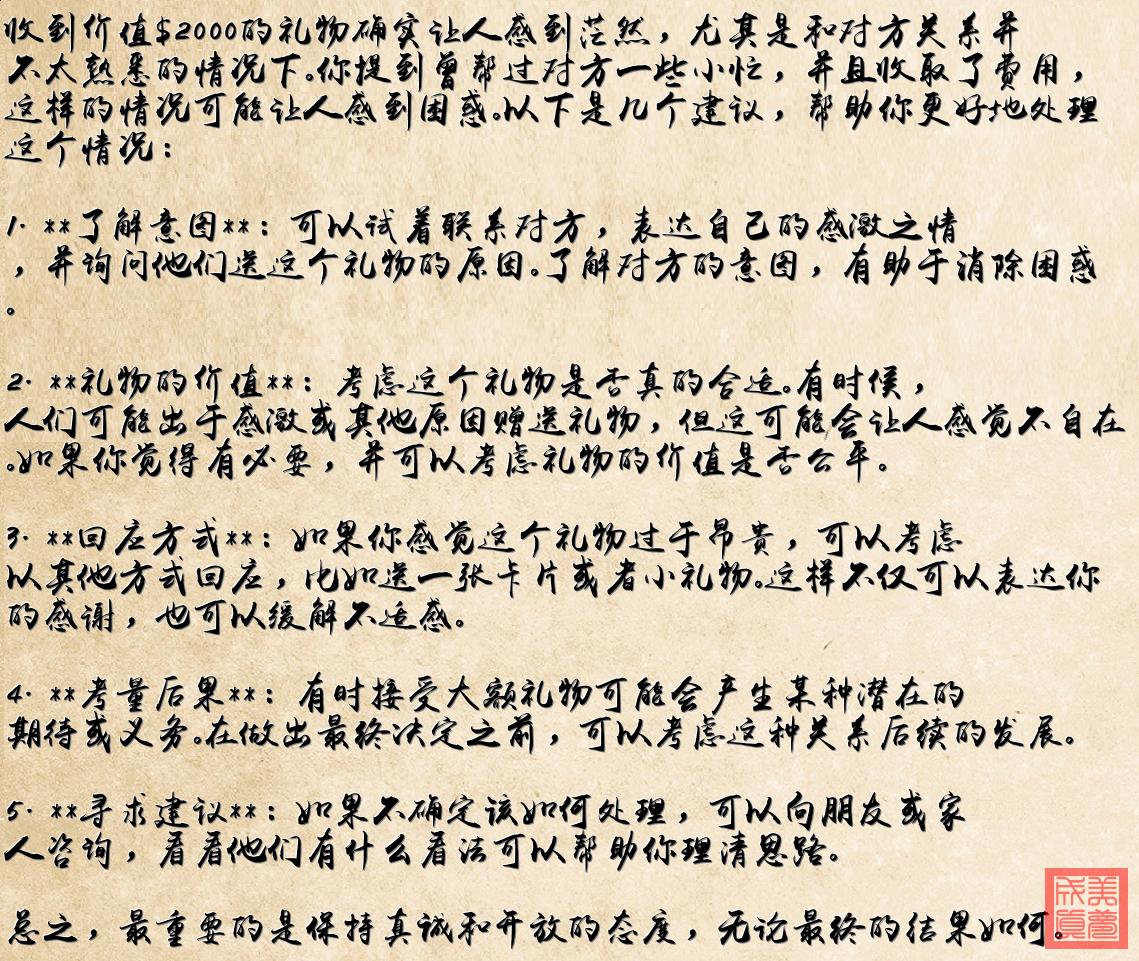 收到价值$2000的礼物确实让人感到茫然，尤其是和对方关系并
不太熟悉的情况下。你提到曾帮过对方一些小忙，并且收取了费用，
这样的情况可能让人感到困惑。以下是几个建议，帮助你更好地处理
这个情况：
1. **了解意图**：可以试着联系对方，表达自己的感激之情
，并询问他们送这个礼物的原因。了解对方的意图，有助于消除困惑
。
2. **礼物的价值**：考虑这个礼物是否真的合适。有时候，
人们可能出于感激或其他原因赠送礼物，但这可能会让人感觉不自在
。如果你觉得有必要，并可以考虑礼物的价值是否公平。
3. **回应方式**：如果你感觉这个礼物过于昂贵，可以考虑
以其他方式回应，比如送一张卡片或者小礼物。这样不仅可以表达你
的感谢，也可以缓解不适感。
4. **考量后果**：有时接受大额礼物可能会产生某种潜在的
期待或义务。在做出最终决定之前，可以考虑这种关系后续的发展。
5. **寻求建议**：如果不确定该如何处理，可以向朋友或家
人咨询，看看他们有什么看法可以帮助你理清思路。
总之，最重要的是保持真诚和开放的态度，无论最终的结果如何。
美梦成真